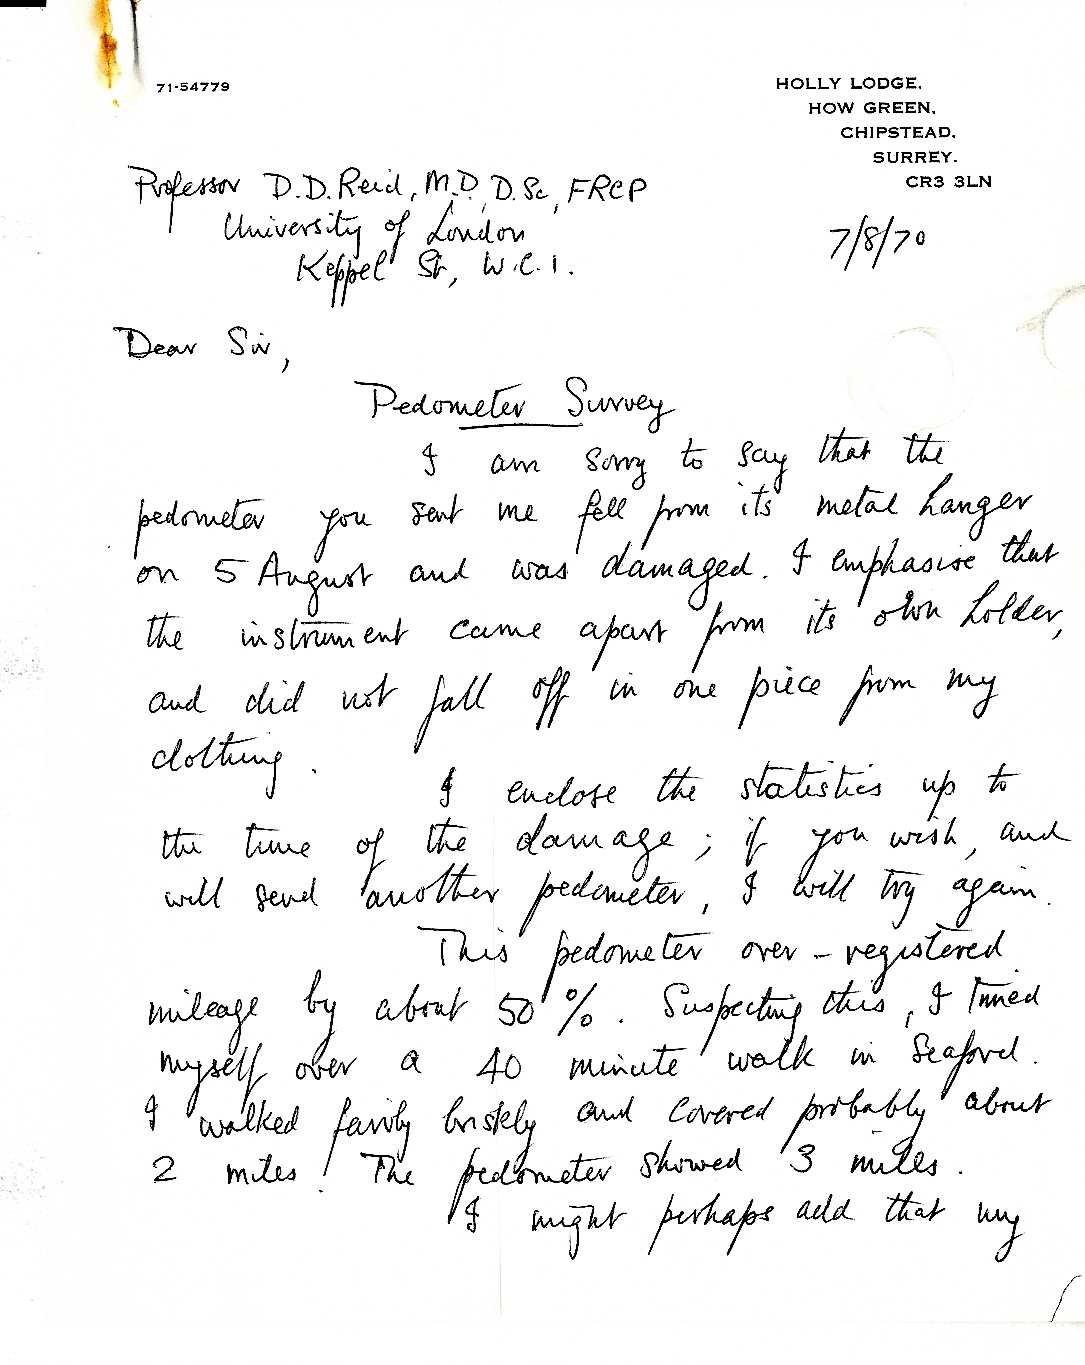 71-54779
HOLLY LODGE,
HOW GREEN,
CHIPSTEAD,
SURREY.
CR3 3LN
Professor D.D. Reid, M.D., D.Sc, FRCP
University of London
Keppel St, W.C.1.
7/8/70
Dear Sir,
Pedometer Survey
I am sorry to say that the
pedometer you sent me fell from its metal hanger
on 5 August and was damaged. I emphasise that
the instrument came apart from its own holder,
and did not fall off in one piece from my
clothing.
I enclose the statistics up to
the time of the damage; if you wish, and
will send another pedometer, I will try again.
This pedometer over-registered
mileage by about 50%. Suspecting this, I timed
myself over a 40 minute walk in Seaford.
I walked fairly briskly and covered probably about
2 miles. The pedometer showed 3 miles.
I might perhaps add that my